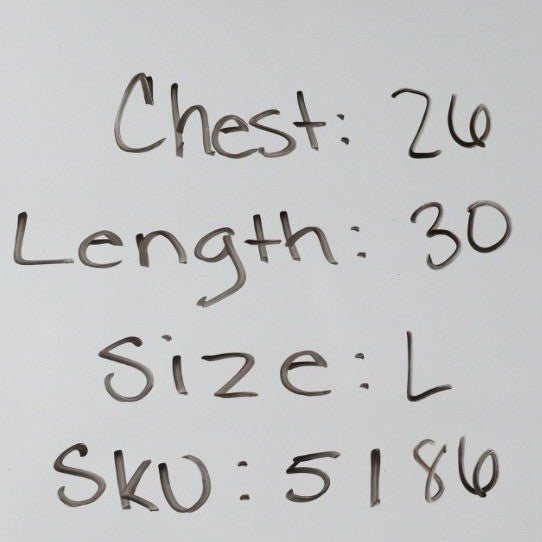 Chest: 26
Length: 30
Size: L
SKU: 5186